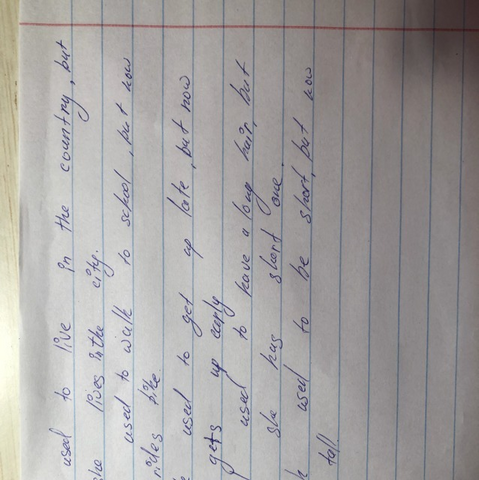 used to live in the country, but
she lives in the city.
used to walk to school, but now
rides bike
used to get up late, but now
gets up early
used to have a long hair, but
she has short one.
used to be short, but now
tall